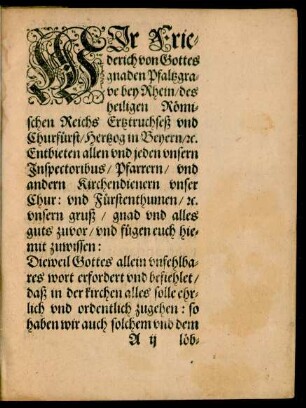 WIr Frie-
derich von Gottes
gnaden Pfaltzgra-
ve bey Rhein/des
heiligen Römi-
schen Reichs Ertztruchseß vnd
Churfürst/Hertzog in Beyern/ꝛc.
Entbieten allen vnd jeden vnsern
Inspectoribus/ Pfarrern/ vnd
andern Kirchendienern vnser
Chur: vnd Fürstenthumen/ ꝛc.
vnsern gruß/ gnad vnd alles
guts zuvor/ vnd fügen euch hie-
mit zuwissen:
Dieweil Gottes allein vnfehlba-
res wort erfordert vnd befiehlet/
daß in der kirchen alles solle ehr-
lich vnd ordentlich zugehen: so
haben wir auch solchem vnd dem
A ij löb-